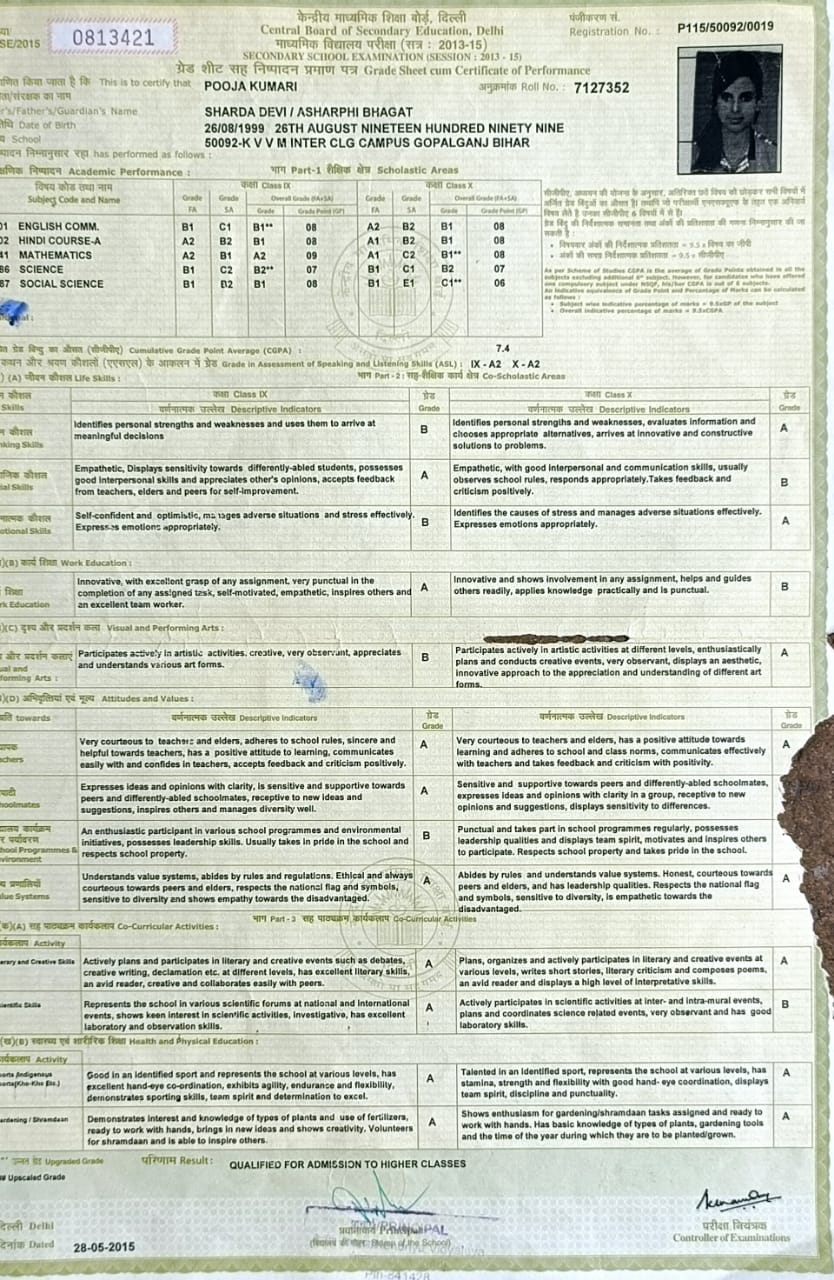 केन्द्रीय माध्यमिक शिक्षा बोर्ड, दिल्ली
Central Board of Secondary Education, Delhi
माध्यमिक विद्यालय परीक्षा (सत्र : 2013-15)
SECONDARY SCHOOL EXAMINATION (SESSION : 2013 - 15)
ग्रेड शीट सह निष्पादन प्रमाण पत्र Grade Sheet cum Certificate of Performance
SE/2015 0813421
पंजीकरण सं.
Registration No. : P115/50092/0019
This is to certify that POOJA KUMARI
अनुक्रमांक Roll No. : 7127352
Father's/Guardian's Name SHARDA DEVI / ASHARPHI BHAGAT
Date of Birth 26/08/1999 26TH AUGUST NINETEEN HUNDRED NINETY NINE
School 50092-K V V M INTER CLG CAMPUS GOPALGANJ BIHAR
has performed as follows :
Academic Performance : भाग Part-1 शैक्षिक क्षेत्र Scholastic Areas
विषय कोड तथा नाम कक्षा Class IX कक्षा Class X
Subject Code and Name Grade FA Grade SA Overall Grade (FA+SA) Grade Grade Point (GP) Grade FA Grade SA Overall Grade (FA+SA) Grade Grade Point (GP)
01 ENGLISH COMM. B1 C1 B1** 08 A2 B2 B1 08
02 HINDI COURSE-A A2 B2 B1 08 A1 B2 B1 08
41 MATHEMATICS A2 B1 A2 09 A1 C2 B1** 08
86 SCIENCE B1 C2 B2** 07 B1 C1 B2 07
87 SOCIAL SCIENCE B1 B2 B1 08 B1 E1 C1** 06
As per Scheme of Studies CGPA is the average of Grade Points obtained in all the
subjects excluding additional 6th subject. However, for candidates who have offered
one compulsory subject under NSQF, his/her CGPA is out of 6 subjects.
An indicative equivalence of Grade Point and Percentage of Marks can be calculated
as follows :
• Subject wise indicative percentage of marks = 9.5xGP of the subject
• Overall indicative percentage of marks = 9.5xCGPA
Cumulative Grade Point Average (CGPA) : 7.4
Grade in Assessment of Speaking and Listening Skills (ASL) : IX - A2 X - A2
(A) जीवन कौशल Life Skills : भाग Part - 2 : सह-शैक्षिक कार्य क्षेत्र Co-Scholastic Areas
Skills कक्षा Class IX ग्रेड कक्षा Class X ग्रेड
वर्णनात्मक उल्लेख Descriptive Indicators Grade वर्णनात्मक उल्लेख Descriptive Indicators Grade
Identifies personal strengths and weaknesses and uses them to arrive at
meaningful decisions
B
Identifies personal strengths and weaknesses, evaluates information and
chooses appropriate alternatives, arrives at innovative and constructive
solutions to problems.
A
Empathetic, Displays sensitivity towards differently-abled students, possesses
good Interpersonal skills and appreciates other's opinions, accepts feedback
from teachers, elders and peers for self-improvement.
A
Empathetic, with good interpersonal and communication skills, usually
observes school rules, responds appropriately.Takes feedback and
criticism positively.
B
Self-confident and optimistic, manages adverse situations and stress effectively.
Expresses emotions appropriately.
B
Identifies the causes of stress and manages adverse situations effectively.
Expresses emotions appropriately.
A
(B) कार्य शिक्षा Work Education :
Innovative, with excellent grasp of any assignment, very punctual in the
completion of any assigned task, self-motivated, empathetic, inspires others and
an excellent team worker.
A
Innovative and shows involvement in any assignment, helps and guides
others readily, applies knowledge practically and is punctual.
B
(C) दृश्य और प्रदर्शन कला Visual and Performing Arts :
Participates actively in artistic activities, creative, very observant, appreciates
and understands various art forms.
B
Participates actively in artistic activities at different levels, enthusiastically
plans and conducts creative events, very observant, displays an aesthetic,
innovative approach to the appreciation and understanding of different art
forms.
A
(D) अभिवृत्तियां एवं मूल्य Attitudes and Values :
towards वर्णनात्मक उल्लेख Descriptive Indicators ग्रेड Grade वर्णनात्मक उल्लेख Descriptive Indicators ग्रेड Grade
Very courteous to teachers and elders, adheres to school rules, sincere and
helpful towards teachers, has a positive attitude to learning, communicates
easily with and confides in teachers, accepts feedback and criticism positively.
A
Very courteous to teachers and elders, has a positive attitude towards
learning and adheres to school and class norms, communicates effectively
with teachers and takes feedback and criticism with positivity.
A
Expresses ideas and opinions with clarity, is sensitive and supportive towards
peers and differently-abled schoolmates, receptive to new ideas and
suggestions, inspires others and manages diversity well.
A
Sensitive and supportive towards peers and differently-abled schoolmates,
expresses ideas and opinions with clarity in a group, receptive to new
opinions and suggestions, displays sensitivity to differences.
School Programmes & Environment
An enthusiastic participant in various school programmes and environmental
initiatives, possesses leadership skills. Usually takes in pride in the school and
respects school property.
B
Punctual and takes part in school programmes regularly, possesses
leadership qualities and displays team spirit, motivates and inspires others
to participate. Respects school property and takes pride in the school.
Value Systems
Understands value systems, abides by rules and regulations. Ethical and always
courteous towards peers and elders, respects the national flag and symbols,
sensitive to diversity and shows empathy towards the disadvantaged.
A
Abides by rules and understands value systems. Honest, courteous towards
peers and elders, and has leadership qualities. Respects the national flag
and symbols, sensitive to diversity, is empathetic towards the
disadvantaged.
A
भाग Part - 3 सह पाठ्यक्रम कार्यकलाप Co-Curricular Activities
(A) सह पाठ्यक्रम कार्यकलाप Co-Curricular Activities :
कार्यकलाप Activity
Literary and Creative Skills
Actively plans and participates in literary and creative events such as debates,
creative writing, declamation etc. at different levels, has excellent literary skills,
an avid reader, creative and collaborates easily with peers.
A
Plans, organizes and actively participates in literary and creative events at
various levels, writes short stories, literary criticism and composes poems,
an avid reader and displays a high level of interpretative skills.
A
Scientific Skills
Represents the school in various scientific forums at national and international
events, shows keen interest in scientific activities, investigative, has excellent
laboratory and observation skills.
A
Actively participates in scientific activities at inter- and intra-mural events,
plans and coordinates science related events, very observant and has good
laboratory skills.
B
(B) स्वास्थ्य एवं शारीरिक शिक्षा Health and Physical Education :
कार्यकलाप Activity
Good in an identified sport and represents the school at various levels, has
excellent hand-eye co-ordination, exhibits agility, endurance and flexibility,
demonstrates sporting skills, team spirit and determination to excel.
A
Talented in an Identified sport, represents the school at various levels, has
stamina, strength and flexibility with good hand- eye coordination, displays
team spirit, discipline and punctuality.
A
Gardening / Shramdaan
Demonstrates interest and knowledge of types of plants and use of fertilizers,
ready to work with hands, brings in new ideas and shows creativity. Volunteers
for shramdaan and is able to inspire others.
A
Shows enthusiasm for gardening/shramdaan tasks assigned and ready to
work with hands. Has basic knowledge of types of plants, gardening tools
and the time of the year during which they are to be planted/grown.
A
Upgraded Grade परिणाम Result : QUALIFIED FOR ADMISSION TO HIGHER CLASSES
## Upscaled Grade
दिल्ली Delhi
दिनांक Dated 28-05-2015
PRINCIPAL
परीक्षा नियंत्रक
Controller of Examinations